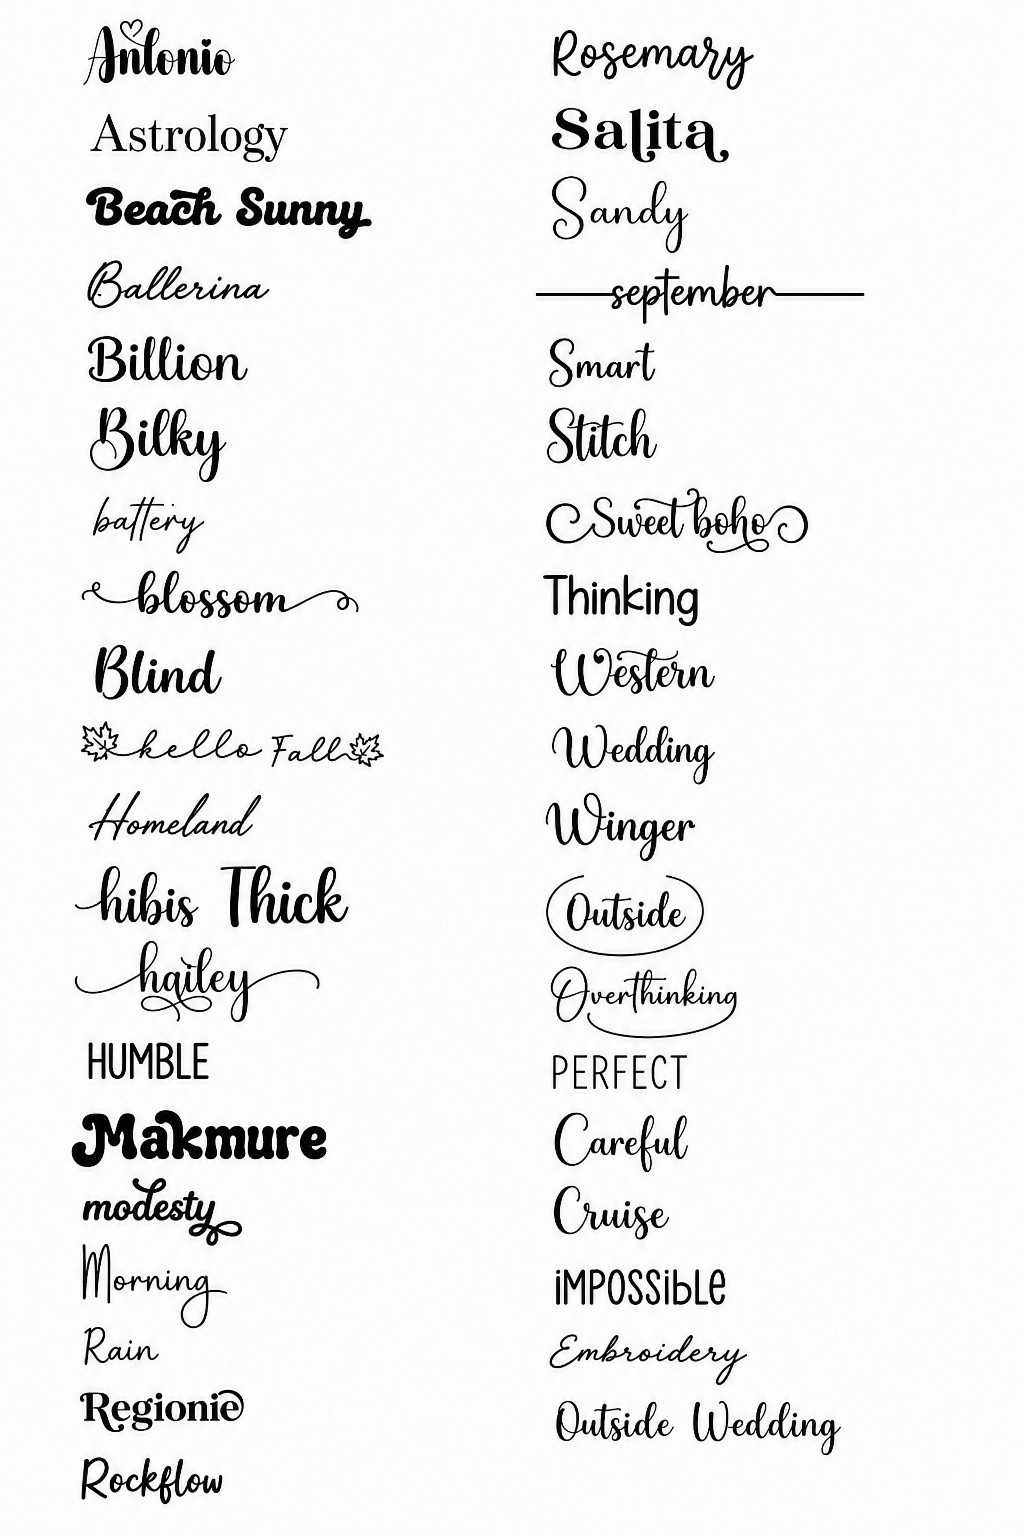 Antonio
Astrology
Beach Sunny
Ballerina
Billion
Bilky
battery
blossom
Blind
hello Fall
Homeland
hibis Thick
hailey
HUMBLE
Makmure
modesty
Morning
Rain
Regionie
Rockflow
Rosemary
Salita
Sandy
september
Smart
Stitch
Sweet boho
Thinking
Western
Wedding
Winger
Outside
Overthinking
PERFECT
Careful
Cruise
iMPOSSibLe
Embroidery
Outside Wedding